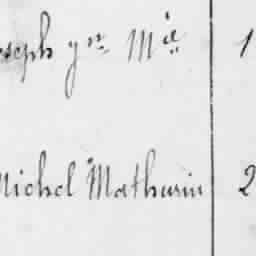 oseph yn Mie 1
Michel Mathurin 2